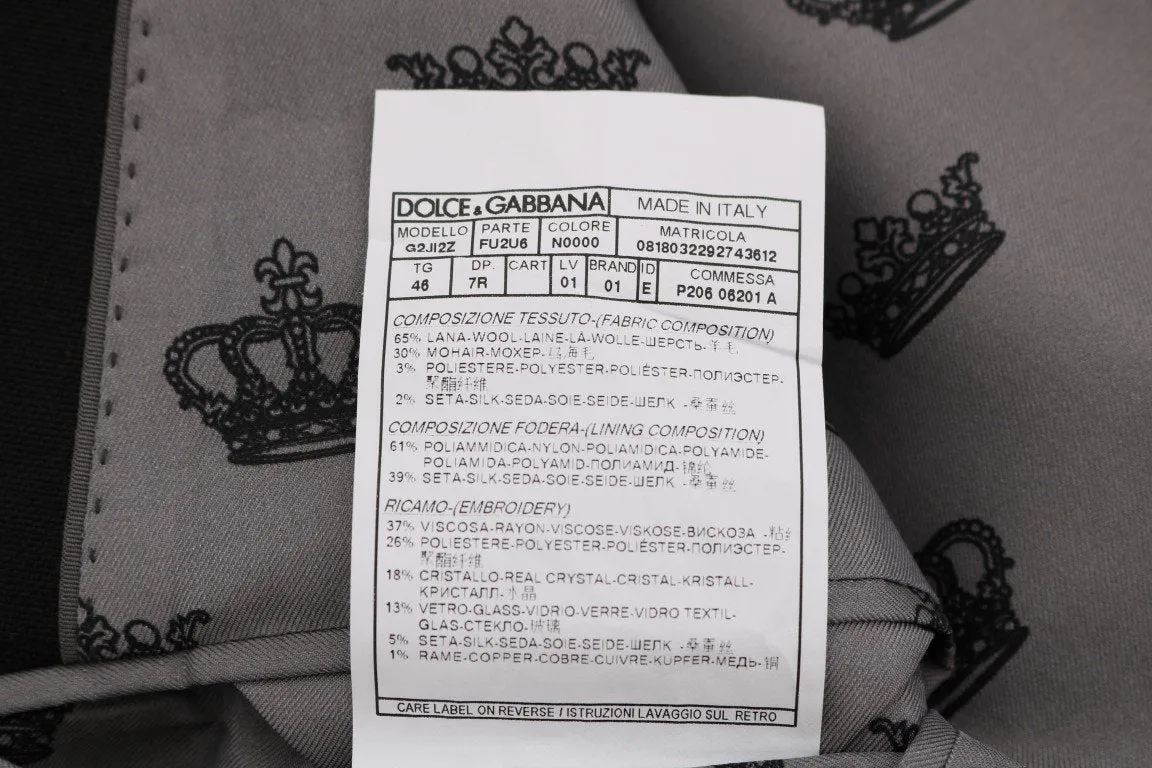 DOLCE & GABBANA MADE IN ITALY
MODELLO PARTE COLORE MATRICOLA
G2JI2Z FU2U6 N0000 0818032292743612
TG DP. CART LV BRAND ID COMMESSA
46 7R 01 01 E P206 06201 A
COMPOSIZIONE TESSUTO-(FABRIC COMPOSITION)
65% LANA-WOOL-LAINE-LÃ-WOLLE-ШЕРСТЬ-羊毛
30% MOHAIR-МОХЕР-马海毛
3% POLIESTERE-POLYESTER-POLIÉSTER-ПОЛИЭСТЕР-
聚酯纤维
2% SETA-SILK-SEDA-SOIE-SEIDE-ШЕЛК -桑蚕丝
COMPOSIZIONE FODERA-(LINING COMPOSITION)
61% POLIAMMIDICA-NYLON-POLIAMIDICA-POLYAMIDE-
POLIAMIDA-POLYAMID-ПОЛИАМИД-锦纶
39% SETA-SILK-SEDA-SOIE-SEIDE-ШЕЛК -桑蚕丝
RICAMO-(EMBROIDERY)
37% VISCOSA-RAYON-VISCOSE-VISKOSE-ВИСКОЗА -粘纤
26% POLIESTERE-POLYESTER-POLIÉSTER-ПОЛИЭСТЕР-
聚酯纤维
18% CRISTALLO-REAL CRYSTAL-CRISTAL-KRISTALL-
КРИСТАЛЛ-水晶
13% VETRO-GLASS-VIDRIO-VERRE-VIDRO TEXTIL-
GLAS-СТЕКЛО-玻璃
5% SETA-SILK-SEDA-SOIE-SEIDE-ШЕЛК -桑蚕丝
1% RAME-COPPER-COBRE-CUIVRE-KUPFER-МЕДЬ-铜
CARE LABEL ON REVERSE / ISTRUZIONI LAVAGGIO SUL RETRO